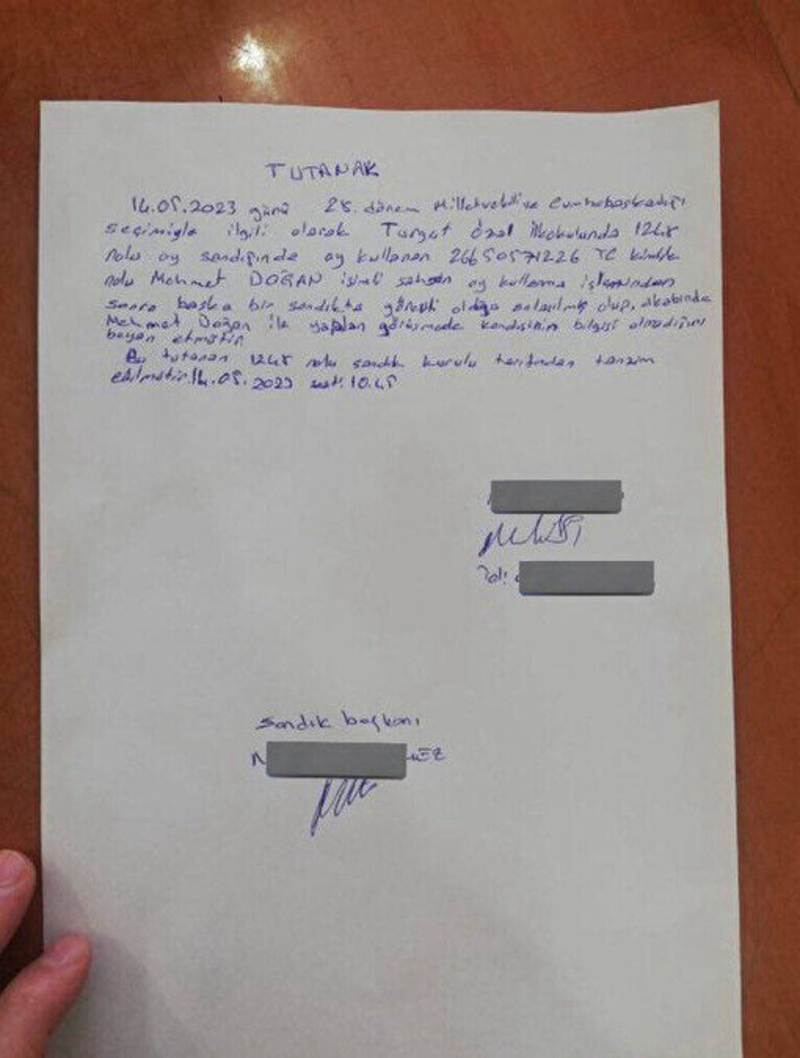 TUTANAK
14.05.2023 günü 28. dönem Milletvekili ve Cumhurbaşkanlığı
seçimiyle ilgili olarak Turgut Özal İlkokulunda 1248
nolu oy sandığında oy kullanan 26650571226 TC kimlik
nolu Mehmet DOĞAN isimli şahsın oy kullanma işleminden
sonra başka bir sandıkta görevli olduğu anlaşılmış olup, akabinde
Mehmet Doğan ile yapılan görüşmede kendisinin bilgisi olmadığını
beyan etmiştir.
Bu tutanak 1248 nolu sandık kurulu tarafından tanzim
edilmiştir. 14.05.2023 saat: 10.45
Sandık başkanı